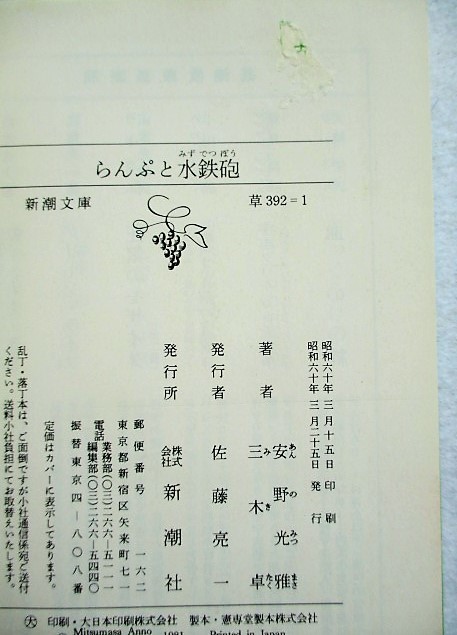 みずでつぽう
らんぷと水鉄砲
新潮文庫
草392=1
昭和六十年三月十五日 印刷
昭和六十年三月二十五日 発行
著者
安野光雅
あんのみつまさ
三木卓
みきたく
発行者 佐藤亮一
発行所 株式会社 新潮社
郵便番号 一六二
東京都新宿区矢来町七一
電話 業務部(〇三)二六六―五一一一
編集部(〇三)二六六―五四四〇
振替東京四―八〇八番
定価はカバーに表示してあります。
乱丁・落丁本は、ご面倒ですが小社通信係宛ご送付
ください。送料小社負担にてお取替えいたします。
大 印刷・大日本印刷株式会社 製本・憲専堂製本株式会社
© Mitsumasa Anno 1981 Printed in Japan